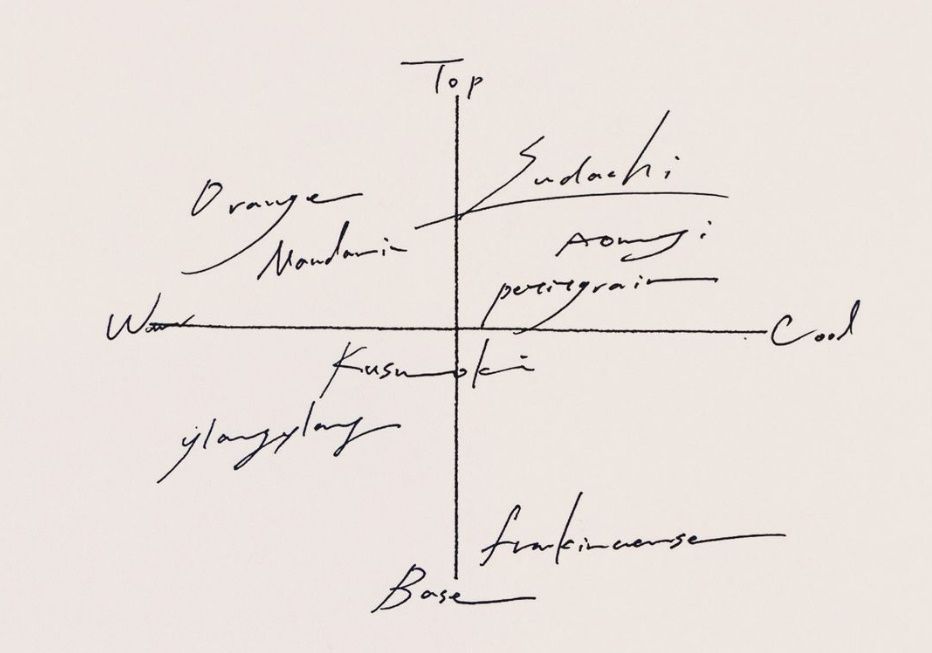 Top
Sudachi
Orange
Mandarin
Aomoji
petitgrain
Warm
Cool
Kusunoki
ylangylang
frankincense
Base